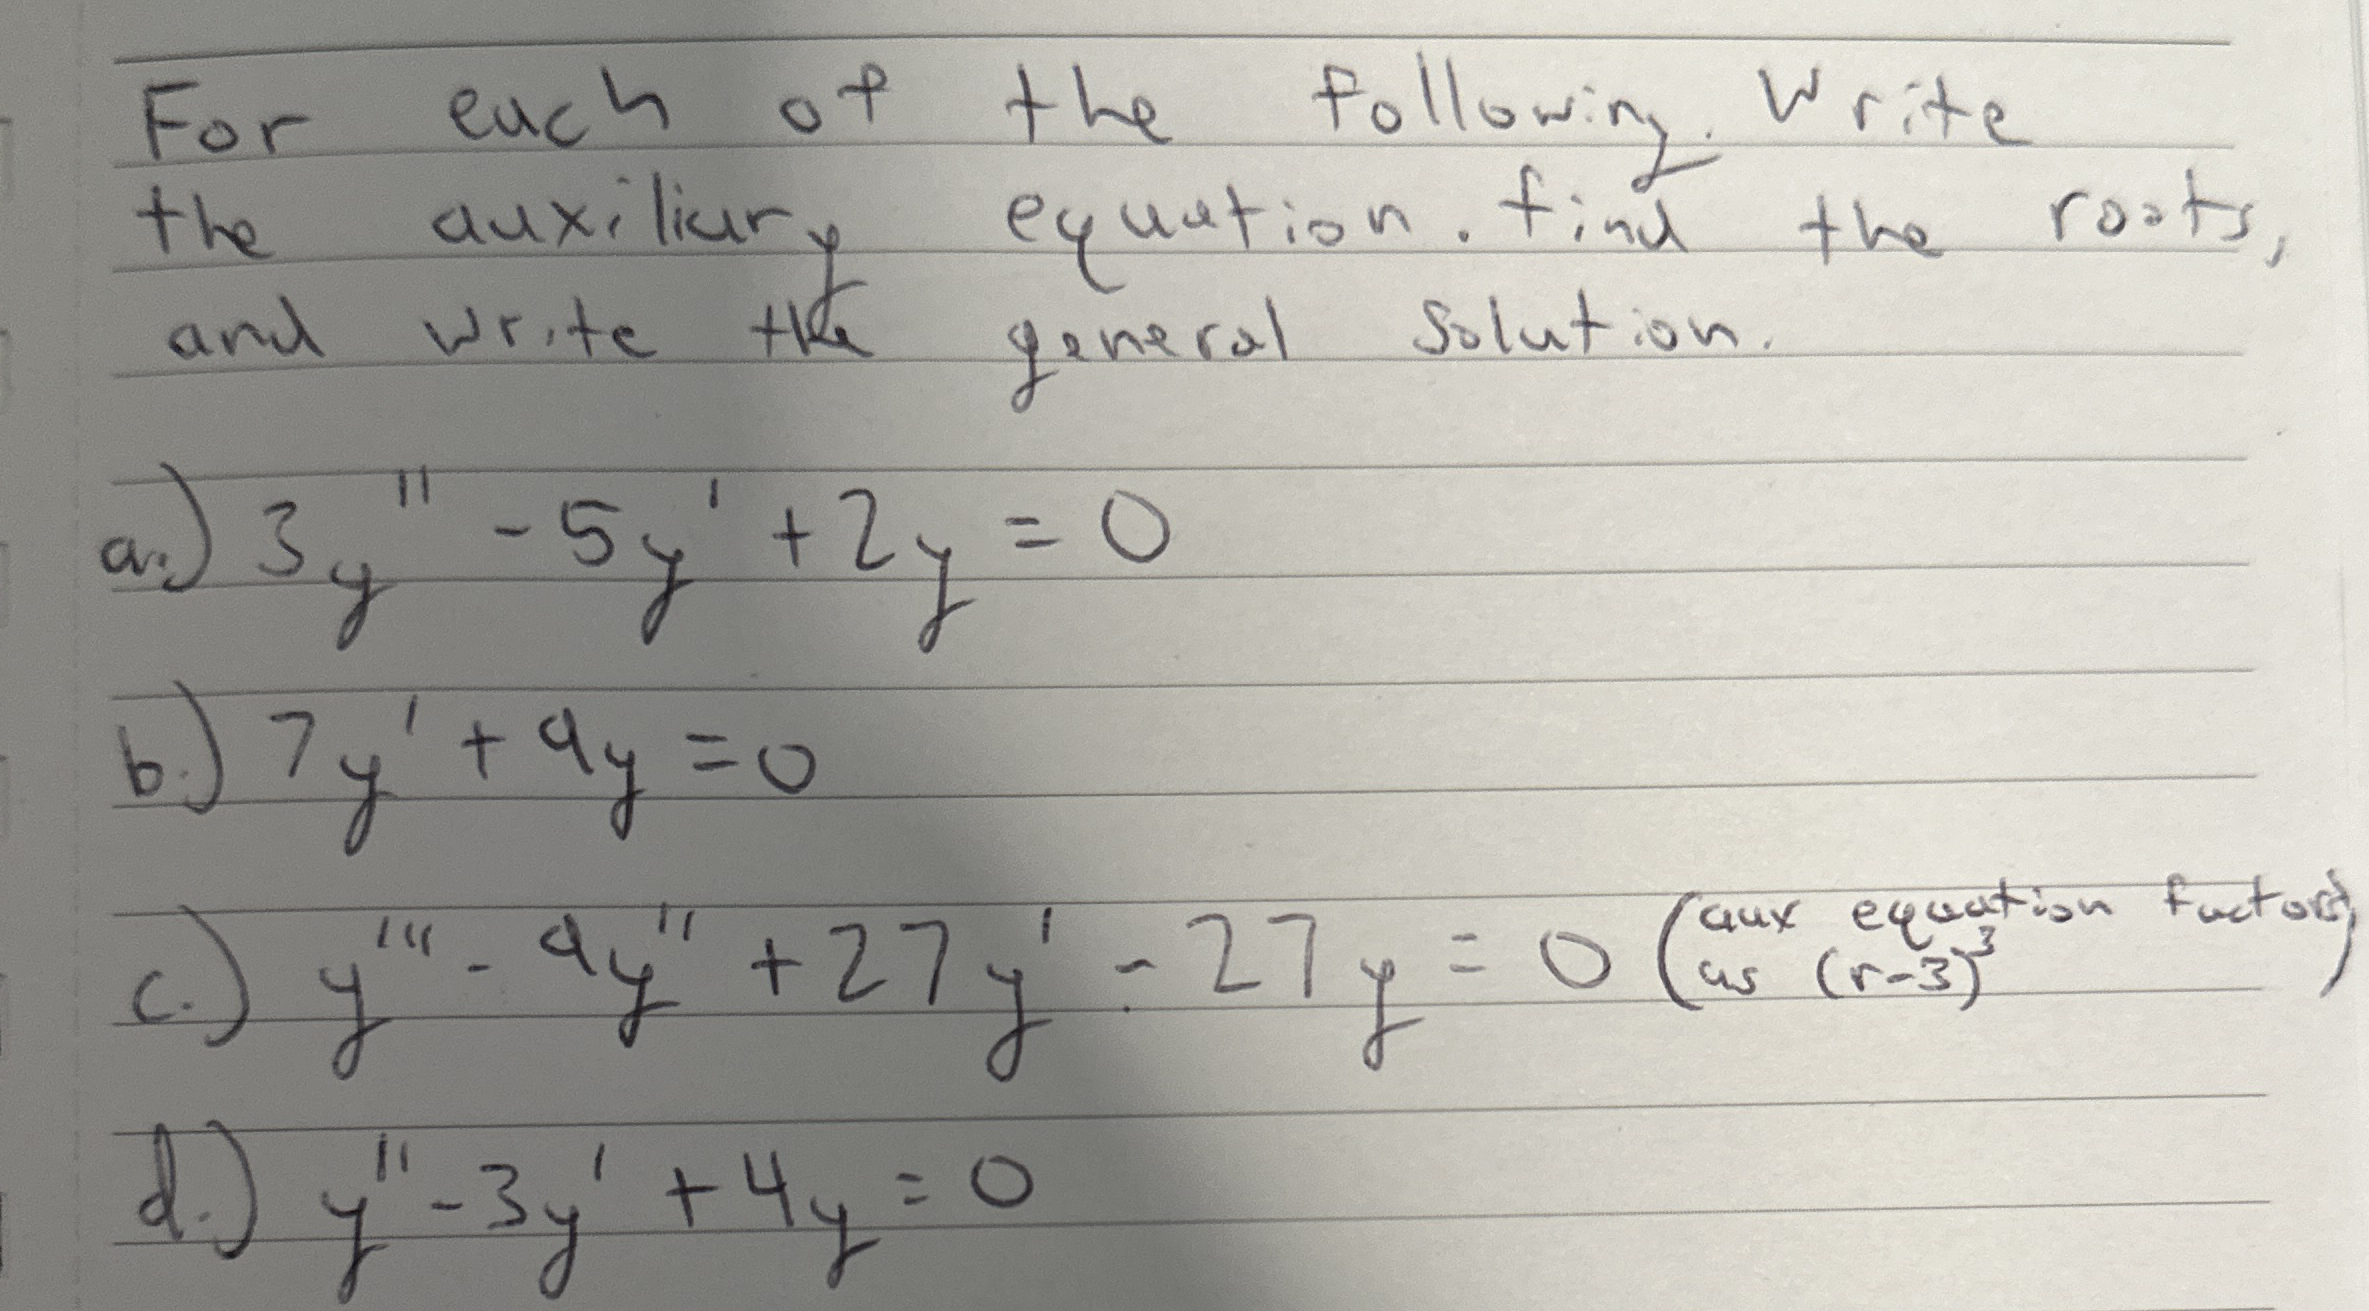 For each of the following. Write
the auxiliary equation. find the roots,
and write the general solution.
a.) 3y'' - 5y' + 2y = 0
b.) 7y' + 9y = 0
c.) y''' - 9y'' + 27y' - 27y = 0 (aux equation factors
as (r-3)³)
d.) y'' - 3y' + 4y = 0